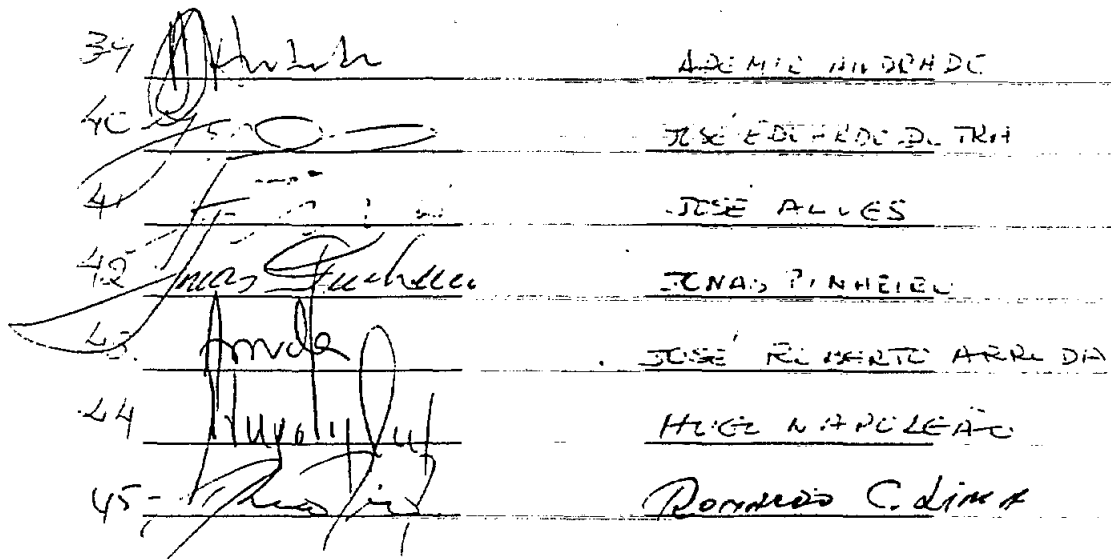 39 ADEMIR ANDRADE
40 JOSÉ EDUARDO DUTRA
41 JOSÉ ALVES
42 Jonas Pinheiro JONAS PINHEIRO
43. Arruda JOSÉ ROBERTO ARRUDA
44 HUGO NAPOLEÃO
45- RONALDO C. LIMA